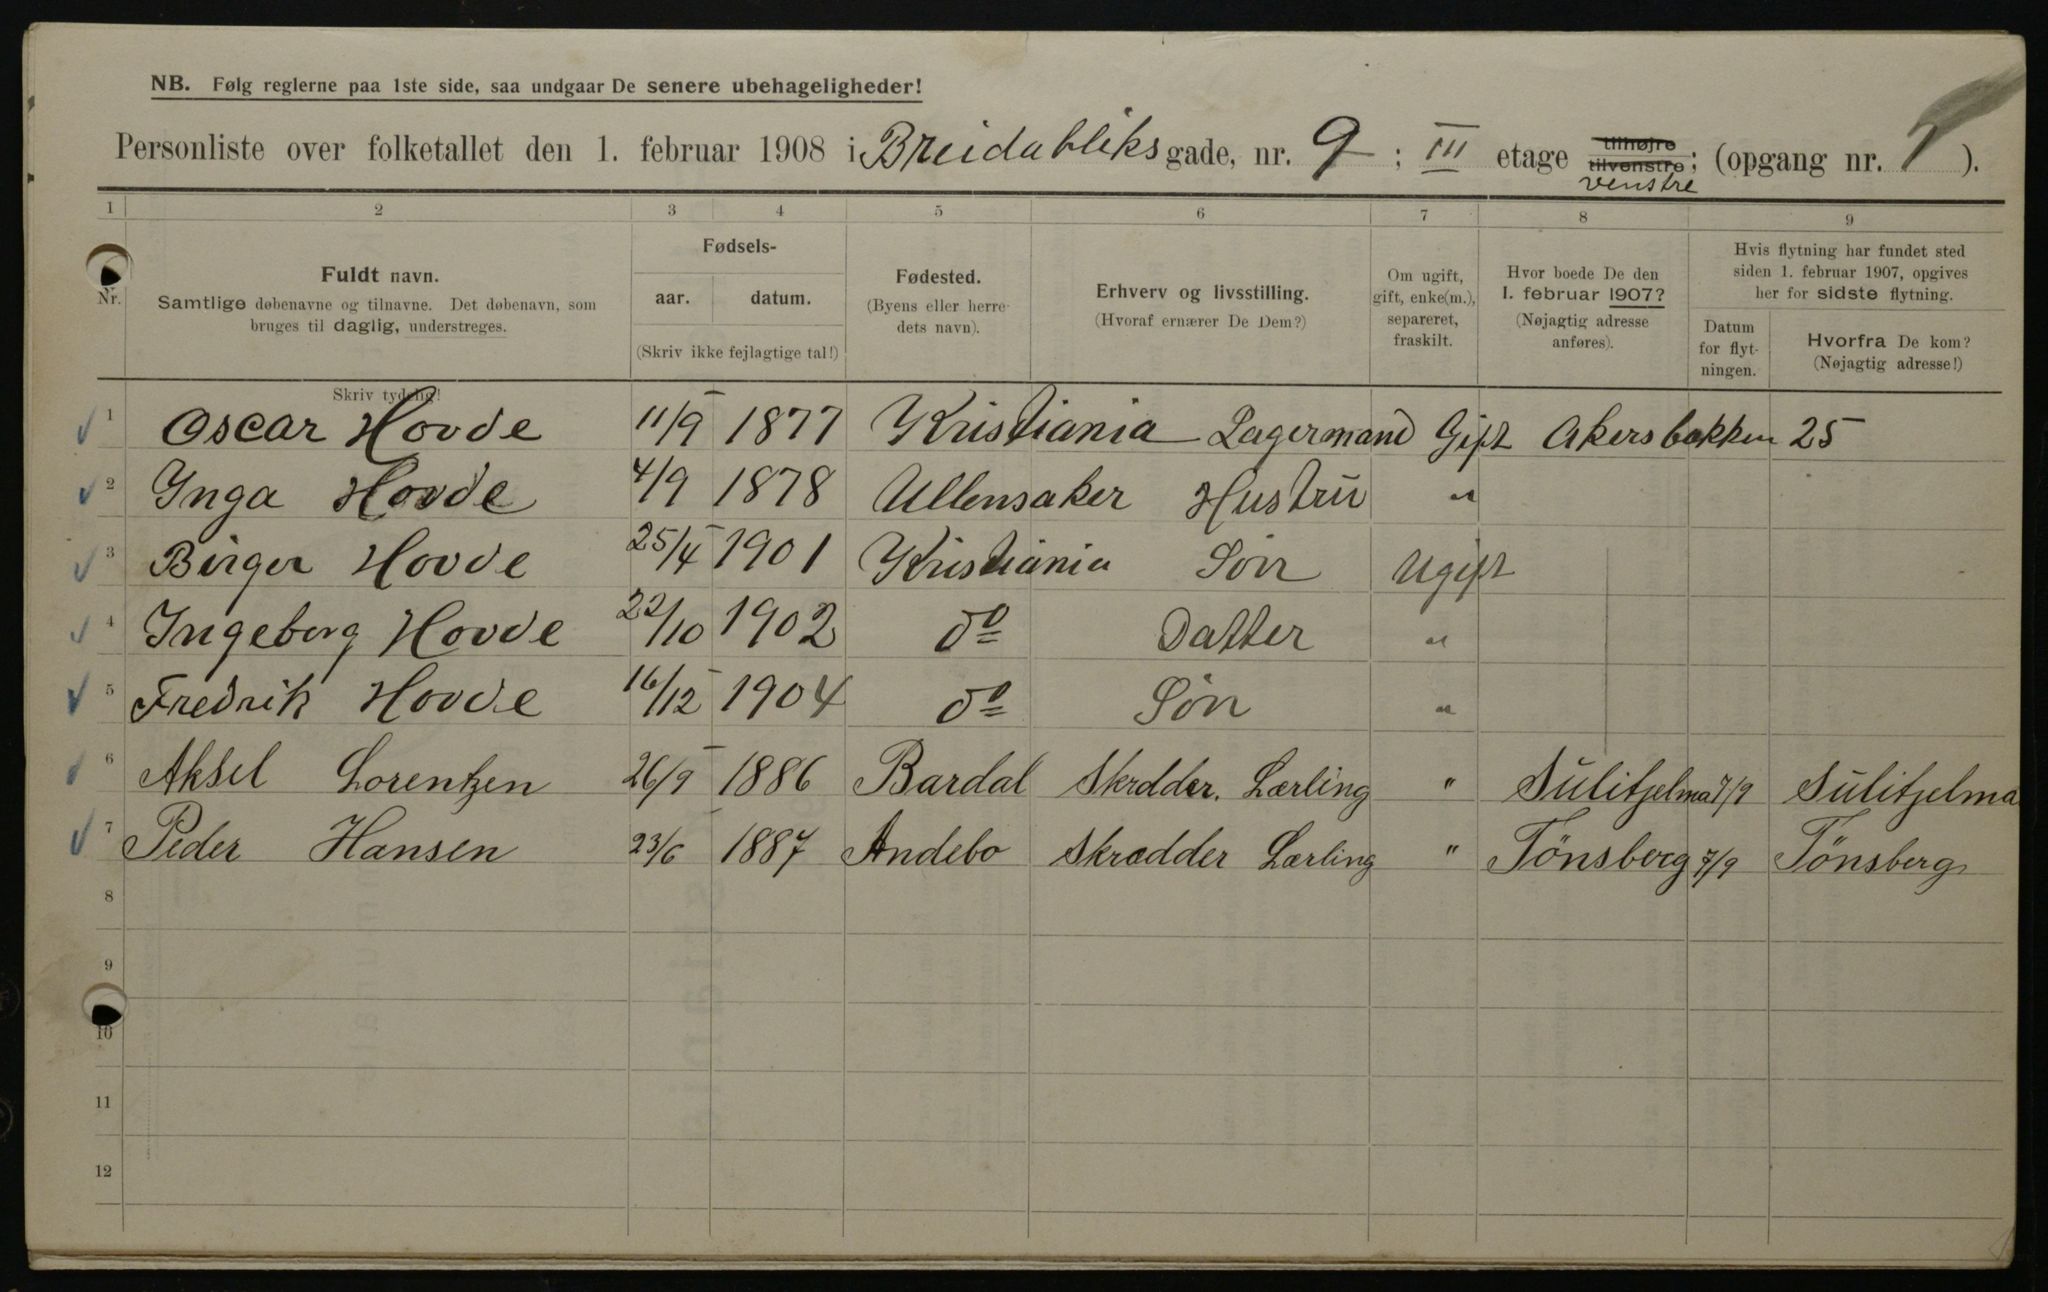 NB. Følg reglerne paa 1ste side, saa undgaar De senere ubehageligheder!
Personliste over folketallet den 1. februar 1908 i Breidabliks gade, nr. 9 ; III etage tilhøjre tilvenstre; venstre (opgang nr. 1 ).
1 2 3 4 5 6 7 8 9
Nr.
Fuldt navn.
Samtlige døbenavne og tilnavne. Det døbenavn, som
bruges til daglig, understreges.
Skriv tydelig!
Fødsels-
aar. datum.
(Skriv ikke fejlagtige tal!)
Fødested.
(Byens eller herre-
dets navn).
Erhverv og livsstilling.
(Hvoraf ernærer De Dem?)
Om ugift,
gift, enke(m.),
separeret,
fraskilt.
Hvor boede De den
1. februar 1907?
(Nøjagtig adresse
anføres).
Hvis flytning har fundet sted
siden 1. februar 1907, opgives
her for sidste flytning.
Datum
for flyt-
ningen.
Hvorfra De kom?
(Nøjagtig adresse!)
1 Oscar Hovde 11/9 1877 Kristiania Lagermand Gift Akersbakken 25
2 Inga Hovde 4/9 1878 Ullensaker Hustru "
3 Birger Hovde 25/4 1901 Kristiania Sön Ugift
4 Ingeborg Hovde 22/10 1902 do Datter "
5 Fredrik Hovde 16/12 1904 do Sön "
6 Aksel Lorentzen 26/9 1886 Bardal Skrdder. Lærling " Sulitjelma 7/9 Sulitjelma
7 Peder Hansen 23/6 1887 Andebo Skrædder Lærling " Tönsberg 7/9 Tönsberg
8
9
10
11
12